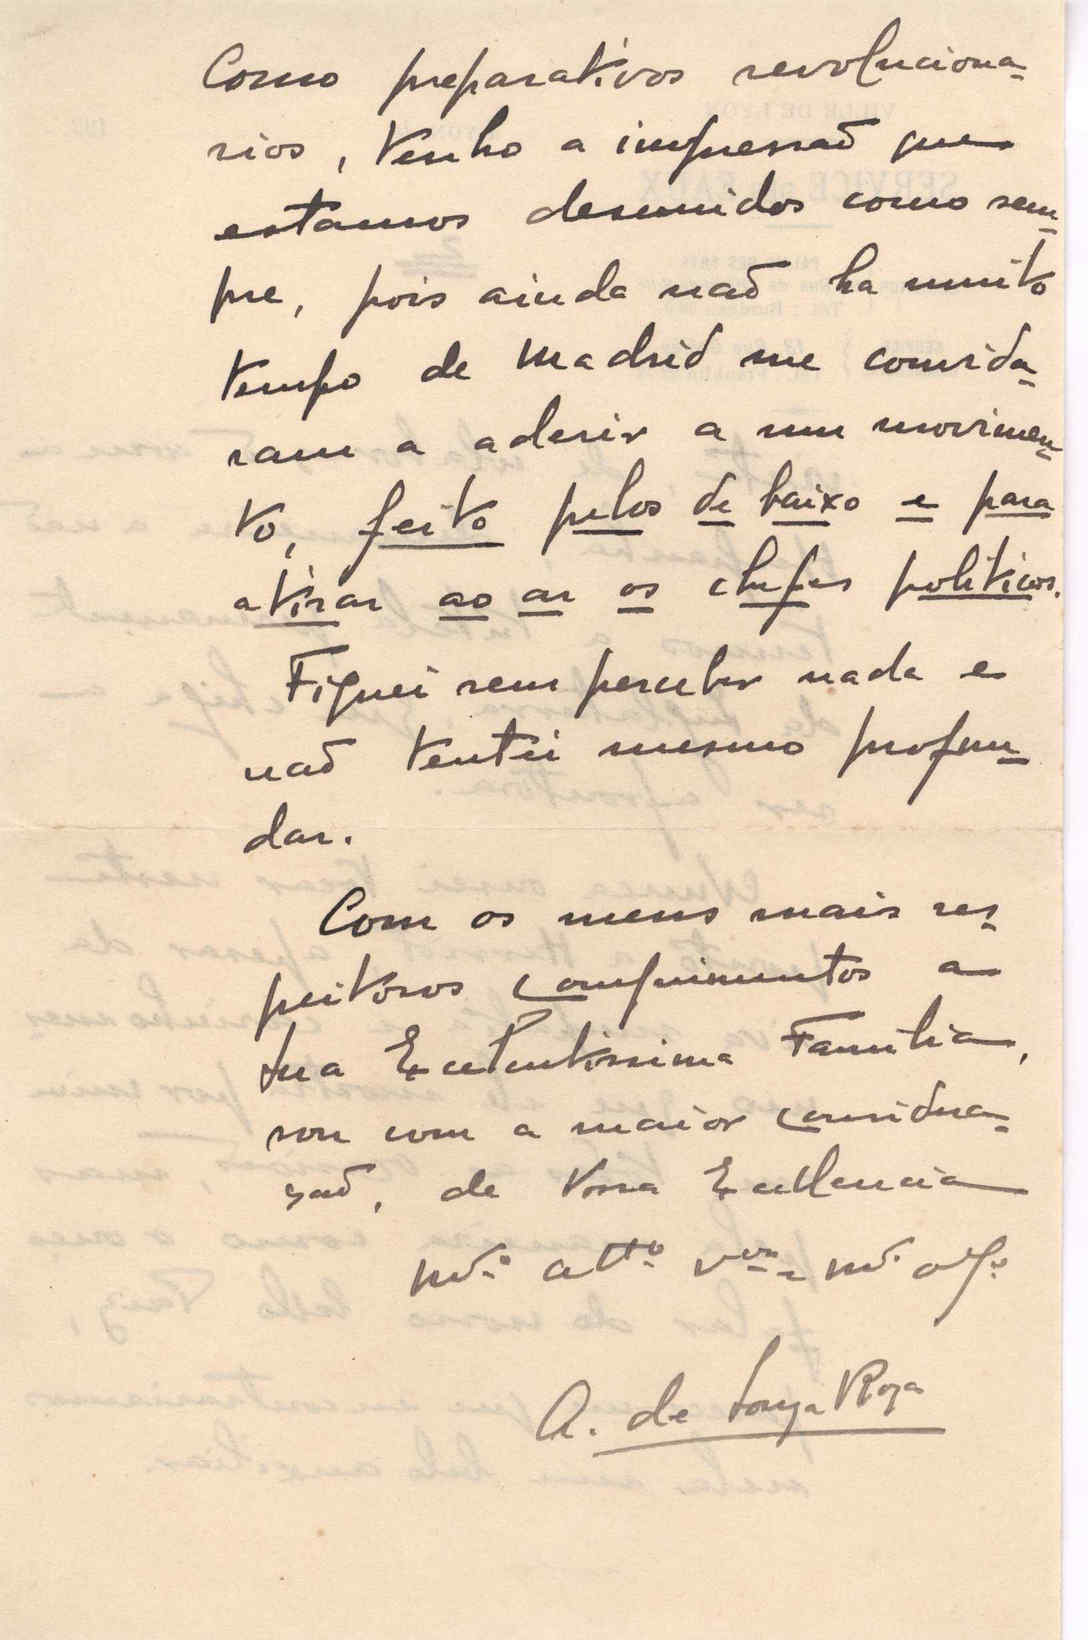 Como preparativos revoluciona-
rios, tenho a impressaõ que
estamos desunidos como sem-
pre, pois ainda naõ ha muito
tempo de Madrid me convida-
ram a aderir a um movimen-
to, feito pelos de baixo e para
atirar ao ar os chefes politicos.
Fiquei sem perceber nada e
naõ tentei mesmo profun-
dar.
Com os meus mais res-
peitosos comprimentos a
Sua Excelentissima Familia,
sou com a maior considera-
çaõ, de Vossa Excellencia
mt.º att.º v.or e mt.º obg.º
A. de Souza Roza